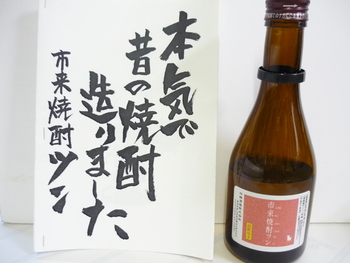 本気で
昔の焼酎
造りました
市来焼酎ツン
市来焼酎ツン